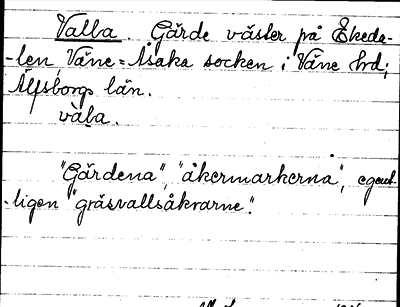 Valla. Gärde väster på Ekeda-
-len, Väne-Åsaka socken i Väne hrd;
Älfsborgs län.
våla.
"Gärdena", "åkermarkerna", egent-
-ligen "gräsvallsåkrarne".